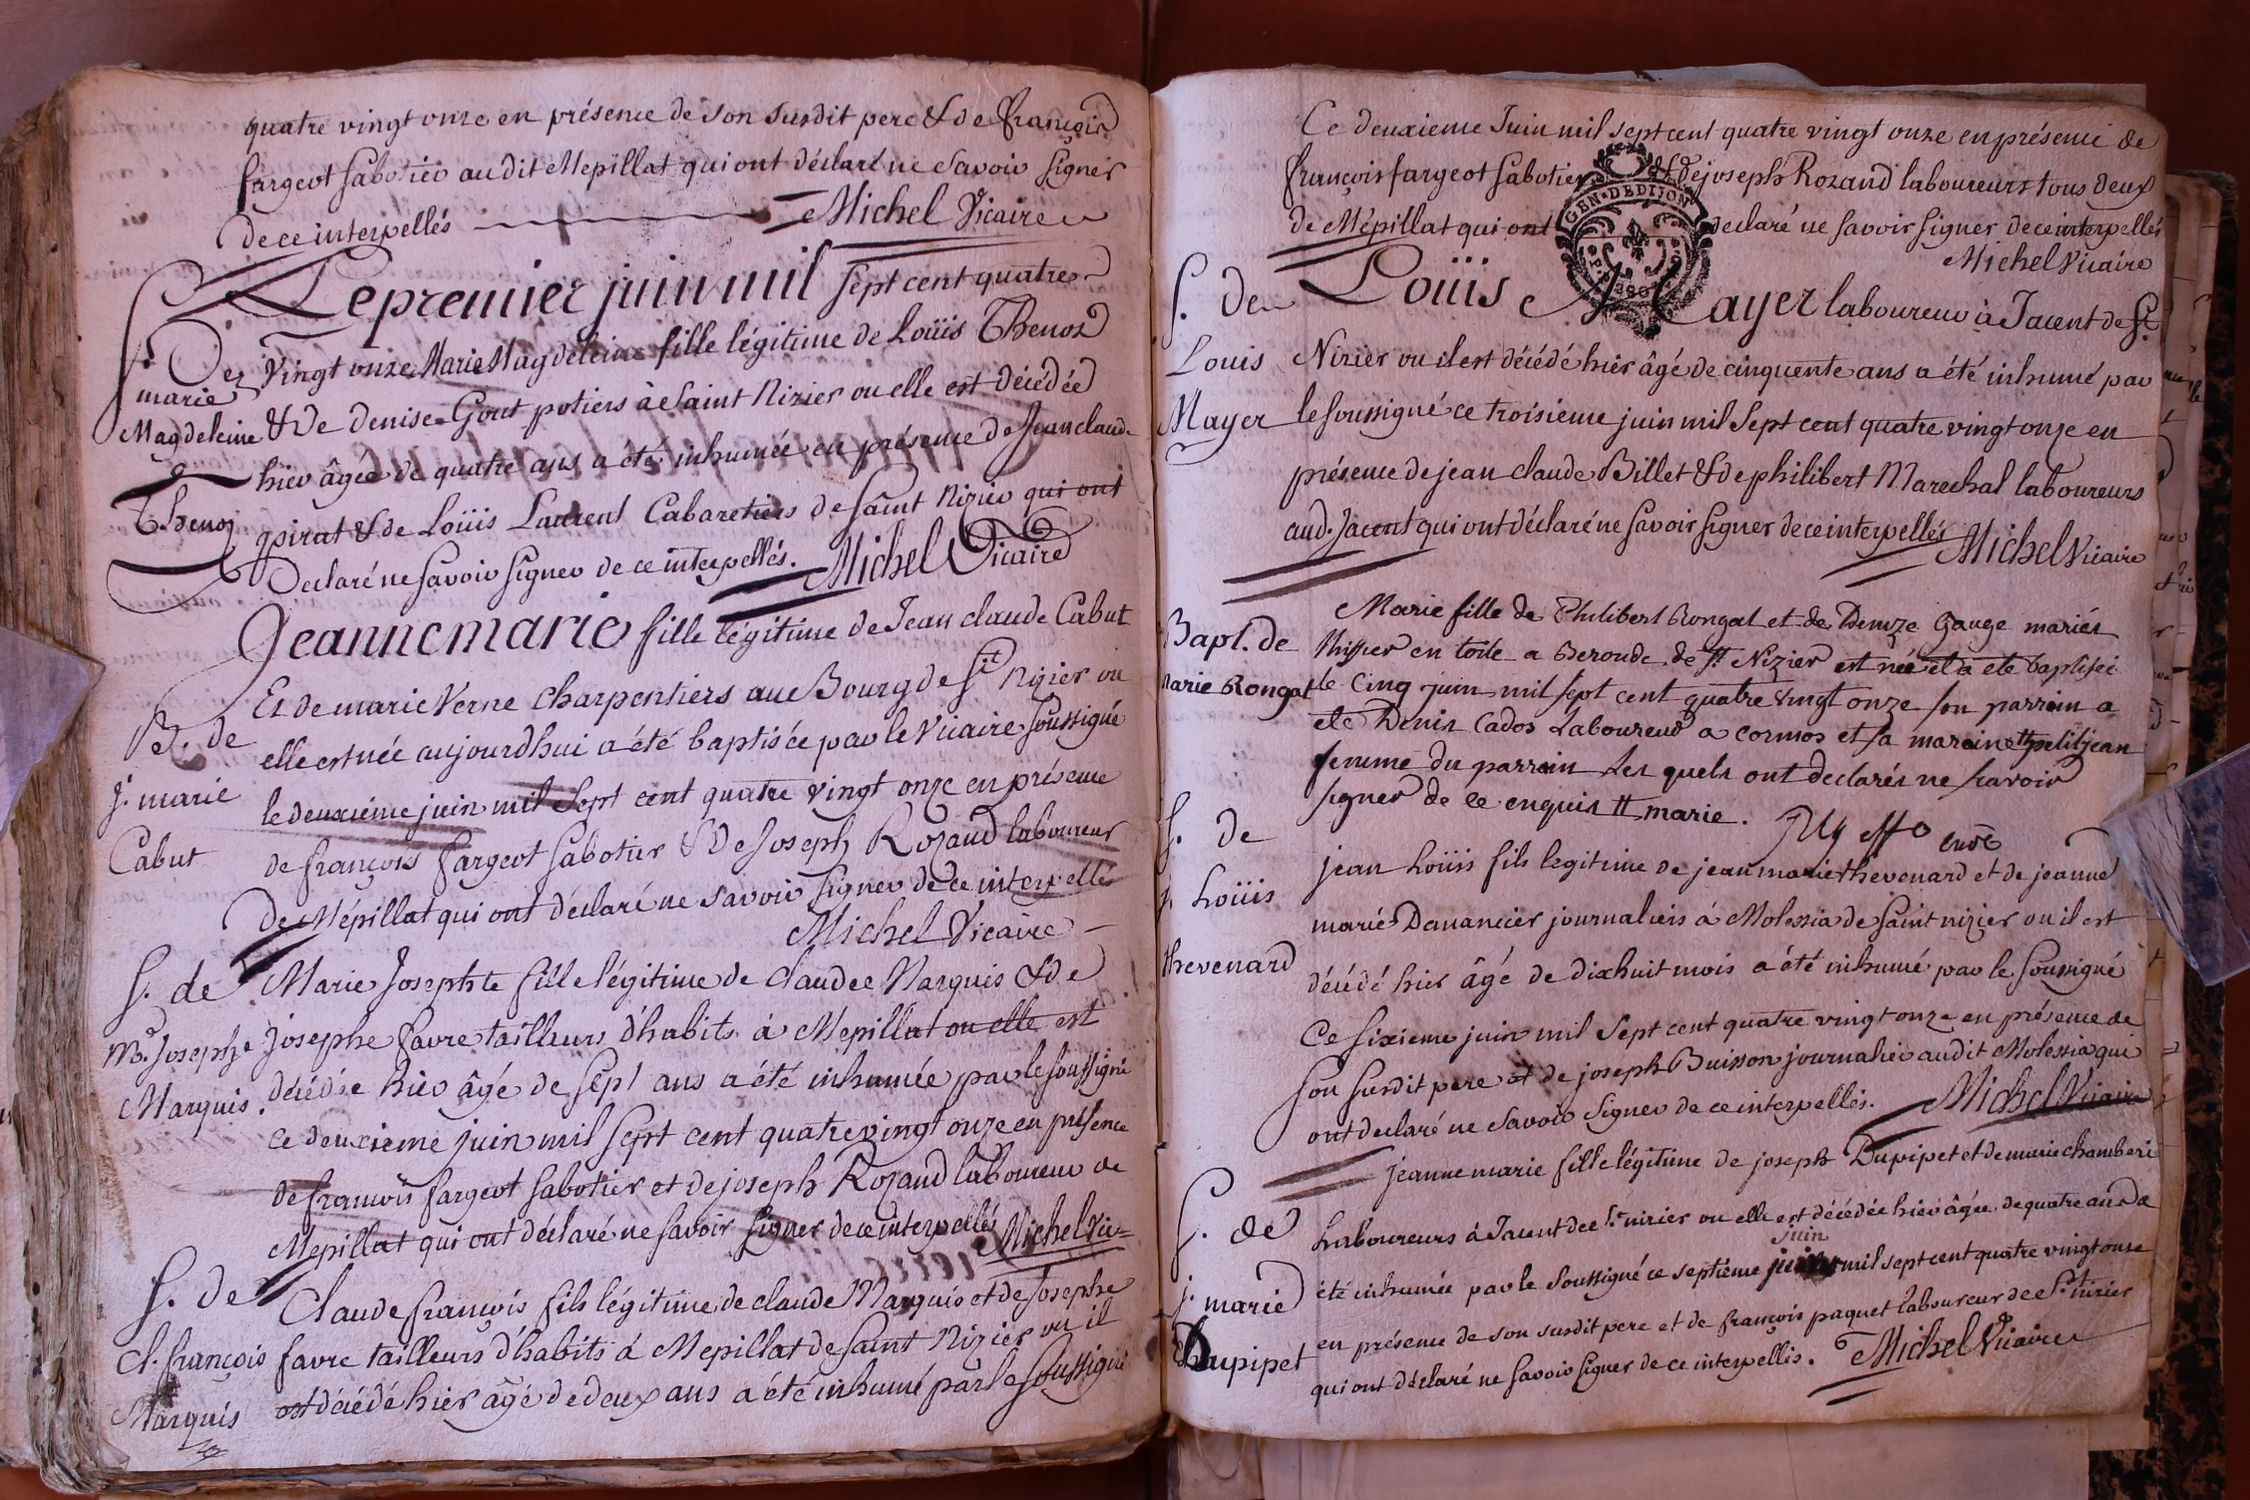 quatre vingt onze en présence de son susdit pere & de françois
fargeot sabotier audit Mepillat qui ont déclaré ne savoir signer
de ce interpellés Michel Vicaire
Le premier juin mil sept cent quatre
S. De vingt onze Marie Magdeleine fille légitime de Loüis Thenoz
marie
Magdeleine & De denise Gout potiers à Saint Nizier ou elle est décédée
hier âgée de quatre ans a été inhumée en présence de Jean claude
Thenoz goirat & de Loüis Laurent Cabaretiers de saint Nizier qui ont
Declaré ne savoir signer de ce interpellés. Michel Vicaire
Jeanne marie fille légitime de Jean claude Cabut
Et de marie Verne Charpentiers au Bourg de St Nizier ou
B. de elle est née aujourdhui a été baptisée par le Vicaire soussigné
j. marie le deuxième juin mil Sept cent quatre vingt onze en présence
Cabut de françois fargeot sabotier & De Joseph Rozand laboureur
de Mépillat qui ont déclaré ne savoir signer de ce interpellés
Michel Vicaire
S. de Marie Josephte fille légitime de claude Marquis & de
Me. Josephe josephe favre tailleurs d'habits à Mépillat ou elle est
Marquis. décédée hier âgé de sept ans a été inhumée par le soussigné
ce deuxieme juin mil sept cent quatre vingt onze en présence
de françois fargeot sabotier et de joseph Rozand laboureur de
Mepillat qui ont déclaré ne savoir signer de ce interpellés Michel Vic=
S. de Claude françois fils légitime de claude Marquis et de Josephe
Cl. françois favre tailleurs d'habits à Mepillat de Saint Nizier ou il
Marquis est décédé hier âgé de deux ans a été inhumé par le soussigné
Ce deuxieme Juin mil sept cent quatre vingt onze en présence de
françois fargeot sabotier & de joseph Rozand laboureurs tous deux
de Mépillat qui ont declaré ne savoir signer de ce interpellés
GEN. DE DIJON
Michel Vicaire
S. De Loüis Mayer laboureur à Jacent de St
Louis Nizier ou il est décédé hier âgé de cinquente ans a été inhumé par
Mayer le soussigné ce troisieme juin mil Sept cent quatre vingt onze en
présence de jean claude Billet & de philibert Marechal laboureurs
aud. Jacent qui ont déclaré ne savoir signer de ce interpellés Michel Vicaire
Marie fille de Philibert Rongat et de Denize Gauge mariés
Bapt. de thissier en toile a Beronde de St Nizier est née et a eté baptisée
Marie Rongat le Cinq juin mil sept cent quatre vingt onze son parrain a
eté Denis Cados Laboureur a cormos et sa maraine petitjean
femme du parrain Les quels ont declarés ne savoir
signer de ce enquis marie.
S. de
jean Loüis fils legitime de jean marie thevenard et de jeanne
j. Loüis
marie Danancier journaliers à Molessia de Saint nizier ou il est
thevenard
décédé hier âgé de dixhuit mois a été inhumé par le soussigné
Ce sixieme juin mil sept cent quatre vingt onze en présence de
son susdit pere et de joseph Buisson journalier audit Molessia qui
ont declaré ne savoir signer de ce interpellés. Michel Vicaire
jeanne marie fille légitime de joseph Dupipet et de marie chamberi
S. de Laboureurs à Jacent de St. nizier ou elle est décédée hier âgée de quatre ans a
juin
j. marie été inhumée par le soussigné ce septième mil sept cent quatre vingt onze
en présence de son susdit pere et de françois paquet laboureur de St nizier
Dupipet qui ont déclaré ne savoir signer de ce interpellés. Michel Vicaire